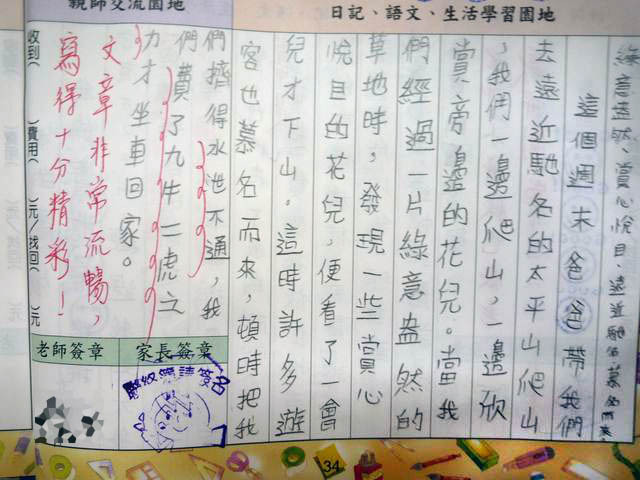 日記、語文、生活學習園地
綠意盎然、賞心悅目、遠近馳名、慕名而來
這個週末爸爸帶我們
去遠近馳名的太平山爬山
，我們一邊爬山，一邊欣
賞旁邊的花兒。當我
們經過一片綠意盎然的
草地時，發現一些賞心
悅目的花兒，便看了一會
兒才下山。這時許多遊
客也慕名而來，頓時把我
們擠得水泄不通，我
們費了九牛二虎之
力才坐車回家。
文章非常流暢，
寫得十分精彩！
親師交流園地
收到( )費用( )元/找回( )元
家長簽章
老師簽章
請簽名
34